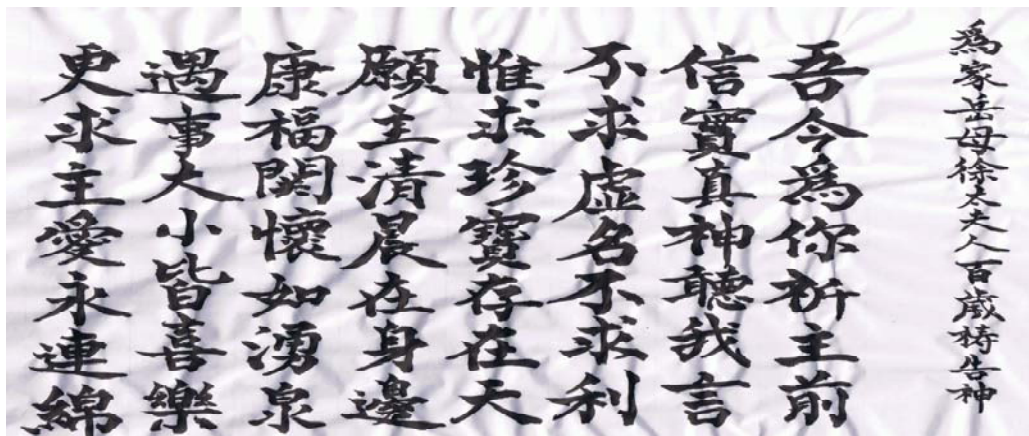 為家岳母徐太夫人百歲禱告神
吾今為你祈主前
信實真神聽我言
不求虛名不求利
惟求珍寶存在天
願主清晨在身邊
康福關懷如湧泉
遇事大小皆喜樂
更求主愛永連綿